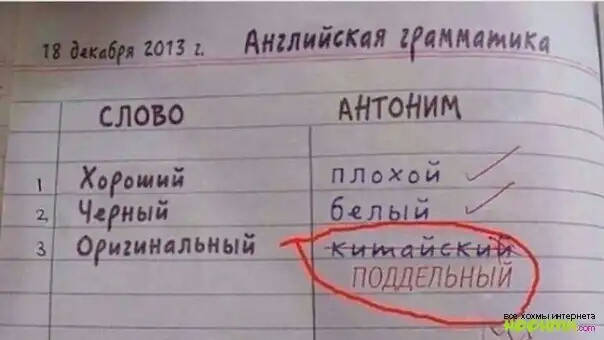 18 декабря 2013 г. Английская грамматика
СЛОВО АНТОНИМ
1 Хороший плохой
2 Черный белый
3 Оригинальный китайский
ПОДДЕЛЬНЫЙ
все хохмы интернета